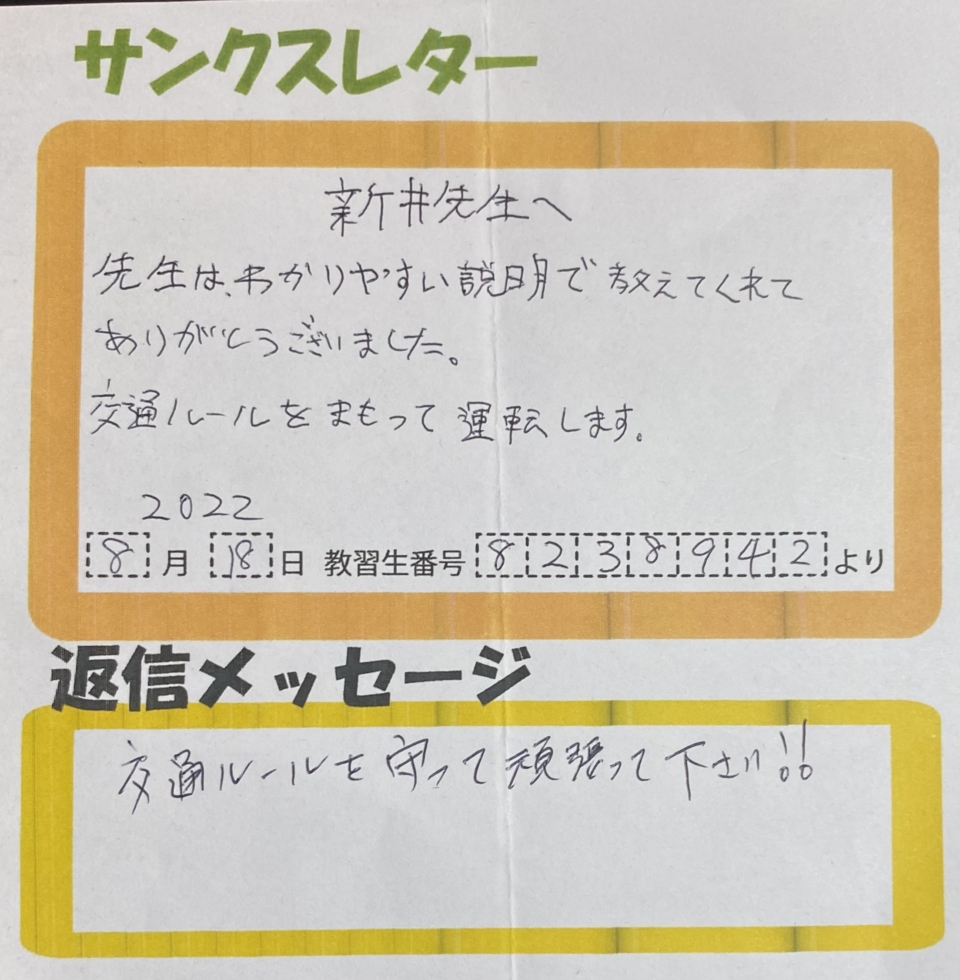 サンクスレター
新井先生へ
先生は、わかりやすい説明で教えてくれて
ありがとうございました。
交通ルールをまもって運転します。
2022
8月18日 教習生番号8238942より
返信メッセージ
交通ルールを守って頑張って下さい!!